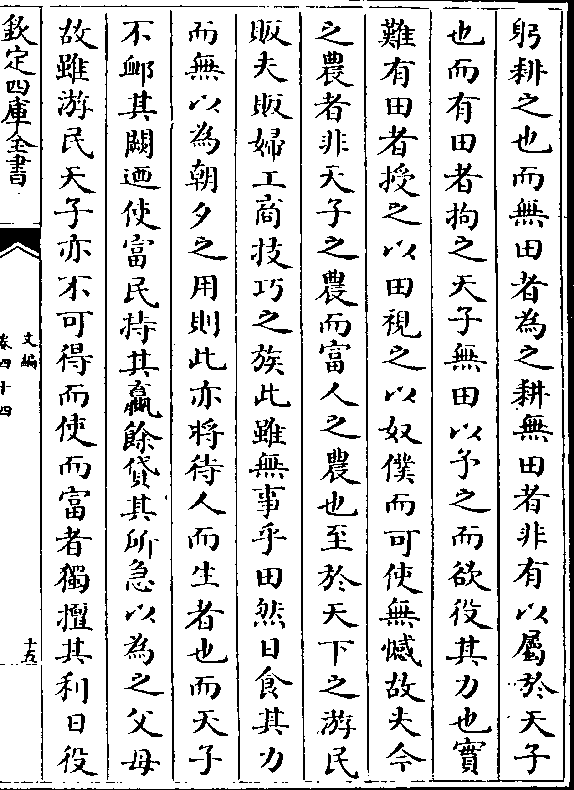 躬耕之也而無田者為之耕無田者非有以屬於天子
也而有田者拘之天子無田以予之而欲役其力也實
難有田者授之以田視之以奴僕而可使無憾故夫今
之農者非天子之農而富人之農也至於天下之游民
販夫販婦工商技巧之族此雖無事乎田然日食其力
而無以為朝夕之用則此亦將待人而生者也而天子
不卹其闕迺使富民持其贏餘貸其所急以為之父母
故雖游民天子亦不可得而使而富者獨擅其利日役
欽定四庫全書
文編
卷四十四
十五